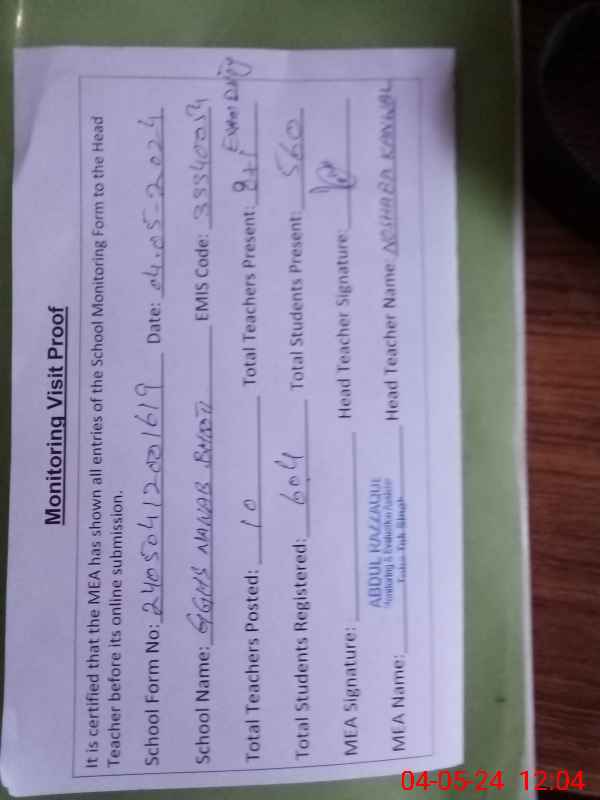 Monitoring Visit Proof
It is certified that the MEA has shown all entries of the School Monitoring Form to the Head
Teacher before its online submission.
School Form No: 240504120001619 Date: 04-05-2024
School Name: GGHS NANAB EMIS Code: 33340054
Total Teachers Posted: 10 Total Teachers Present: 8+1 Exam Duty
Total Students Registered: 604 Total Students Present: 560
MEA Signature: Head Teacher Signature:
ABDUL RAZZAQUE
Monitoring & Evaluation Assistant
Toba Tek Singh
MEA Name: Head Teacher Name: NOSHABA KANWAL
04-05-24 12:04